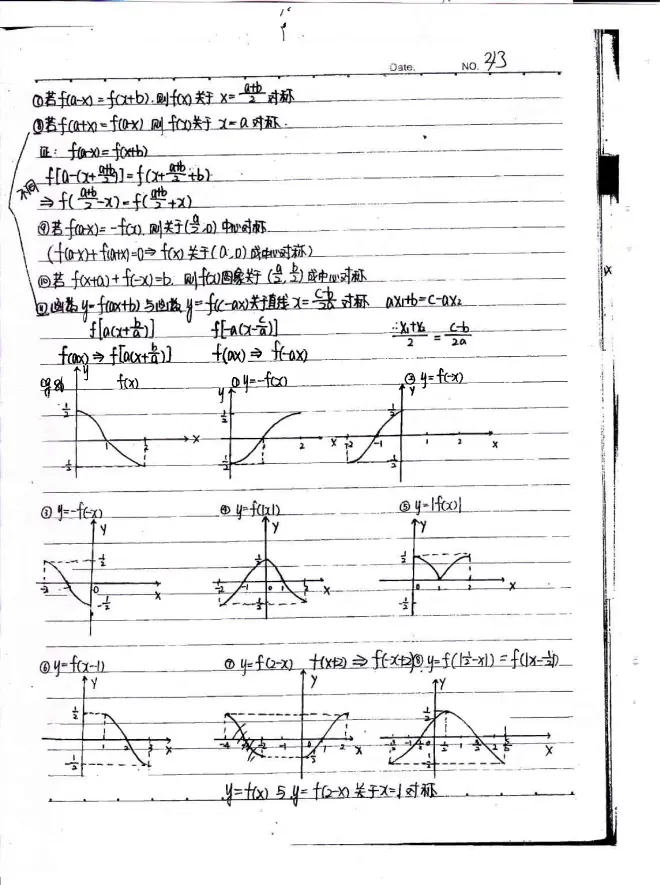 Date.    NO. 43
⑦若f(a-x)=f(x+b),则f(x)关于 x=\frac{a+b}{2} 对称
⑧若f(a+x)=f(a-x) 则 f(x)关于 x=a 对称.
证: f(a-x)=f(x+b)
不同
f[a-(x+\frac{a+b}{2})]=f(x+\frac{a+b}{2}+b)
⇒ f(\frac{a+b}{2}-x)=f(\frac{a+b}{2}+x)
⑨若f(a-x)=-f(x), 则关于(\frac{a}{2},0) 中心对称
(f(a-x)+f(a+x)=0⇒ f(x)关于(a,0)成中心对称)
⑩若 f(x+a)+f(-x)=b, 则f(x)图象关于 (\frac{a}{2},\frac{b}{2})成中心对称
⑪函数y=f(ax+b)与函数 y=f(c-ax)关于直线 x=\frac{c-b}{2a} 对称 ax₁+b=c-ax₂
f[a(x+\frac{b}{a})]  f[-a(x-\frac{c}{a})]  ∴\frac{x₁+x₂}{2}=\frac{c-b}{2a}
f(ax)⇒f[a(x+\frac{b}{a})]  f(ax)⇒f(-ax)
eg
y f(x) ① y=-f(x) ② y=f(-x)
y Y
½ ½ ½
1 2 x 2 x -2 -1 1 2 x
-½ -½ -½
③ y=-f(-x) ④ y=f(|x|) ⑤ y=|f(x)|
Y Y Y
½ ½ ½
-2 0 x -2 -1 0 1 2 x 0 1 2 x
-½ -½ -½
⑥ y=f(x-1) ⑦ y=f(2-x) f(x+2)⇒f(-x+2) ⑧ y=f(|½-x|)=f(|x-½|)
Y Y Y
½ ½
1 2 3 x -4 -2 -1 0 1 2 x 0 ½ 1 2 x
-½ -½
y=f(x) 与 y=f(2-x) 关于x=1对称